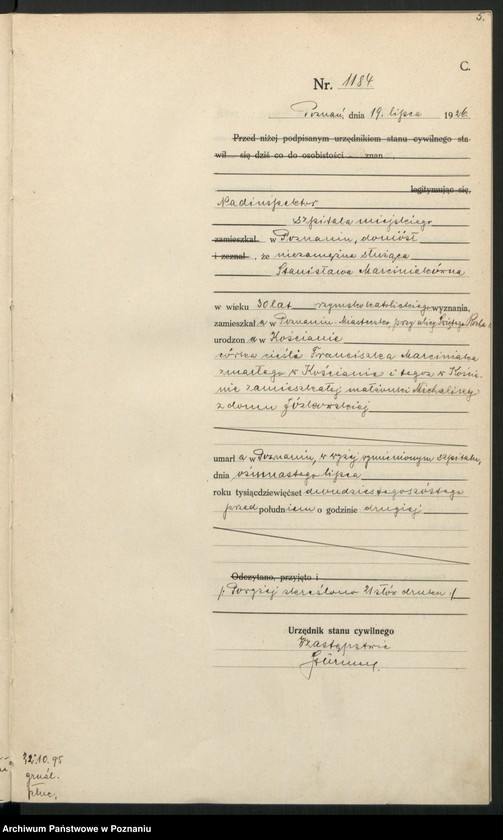 5.
C.
Nr. 1184
Poznań, dnia 19. lipca 1926
Przed niżej podpisanym urzędnikiem stanu cywilnego sta-
wił się dziś co do osobistości znan
legitymując się,
Nadinspektor
szpitala miejskiego
zamieszkał w Poznaniu, doniósł
i zeznał, że niezamężna służąca
Stanisława Marciniakówna
w wieku 30 lat rzymskokatolickiego wyznania,
zamieszkał a w Poznaniu Miasteczko, przy ulicy Świętego
urodzon a w Kościanie
córka cieśli Franciszka Marciniaka
zmarłego w Kościanie i tegoż w Kościa-
nie zamieszkałej małżonki Michaliny
z domu
umarł a w Poznaniu, w wyżej wymienionym szpitalu,
dnia ośmnastego lipca
roku tysiącdziewięćset dwudziestegoszóstego
przed południem o godzinie drugiej
Odczytano, przyjęto i
/: Powyżej skreślono 21 słów druku :/
Urzędnik stanu cywilnego
W zastępstwie
22.10.95
gruźl.
płuc.
Archiwum Państwowe w Poznaniu